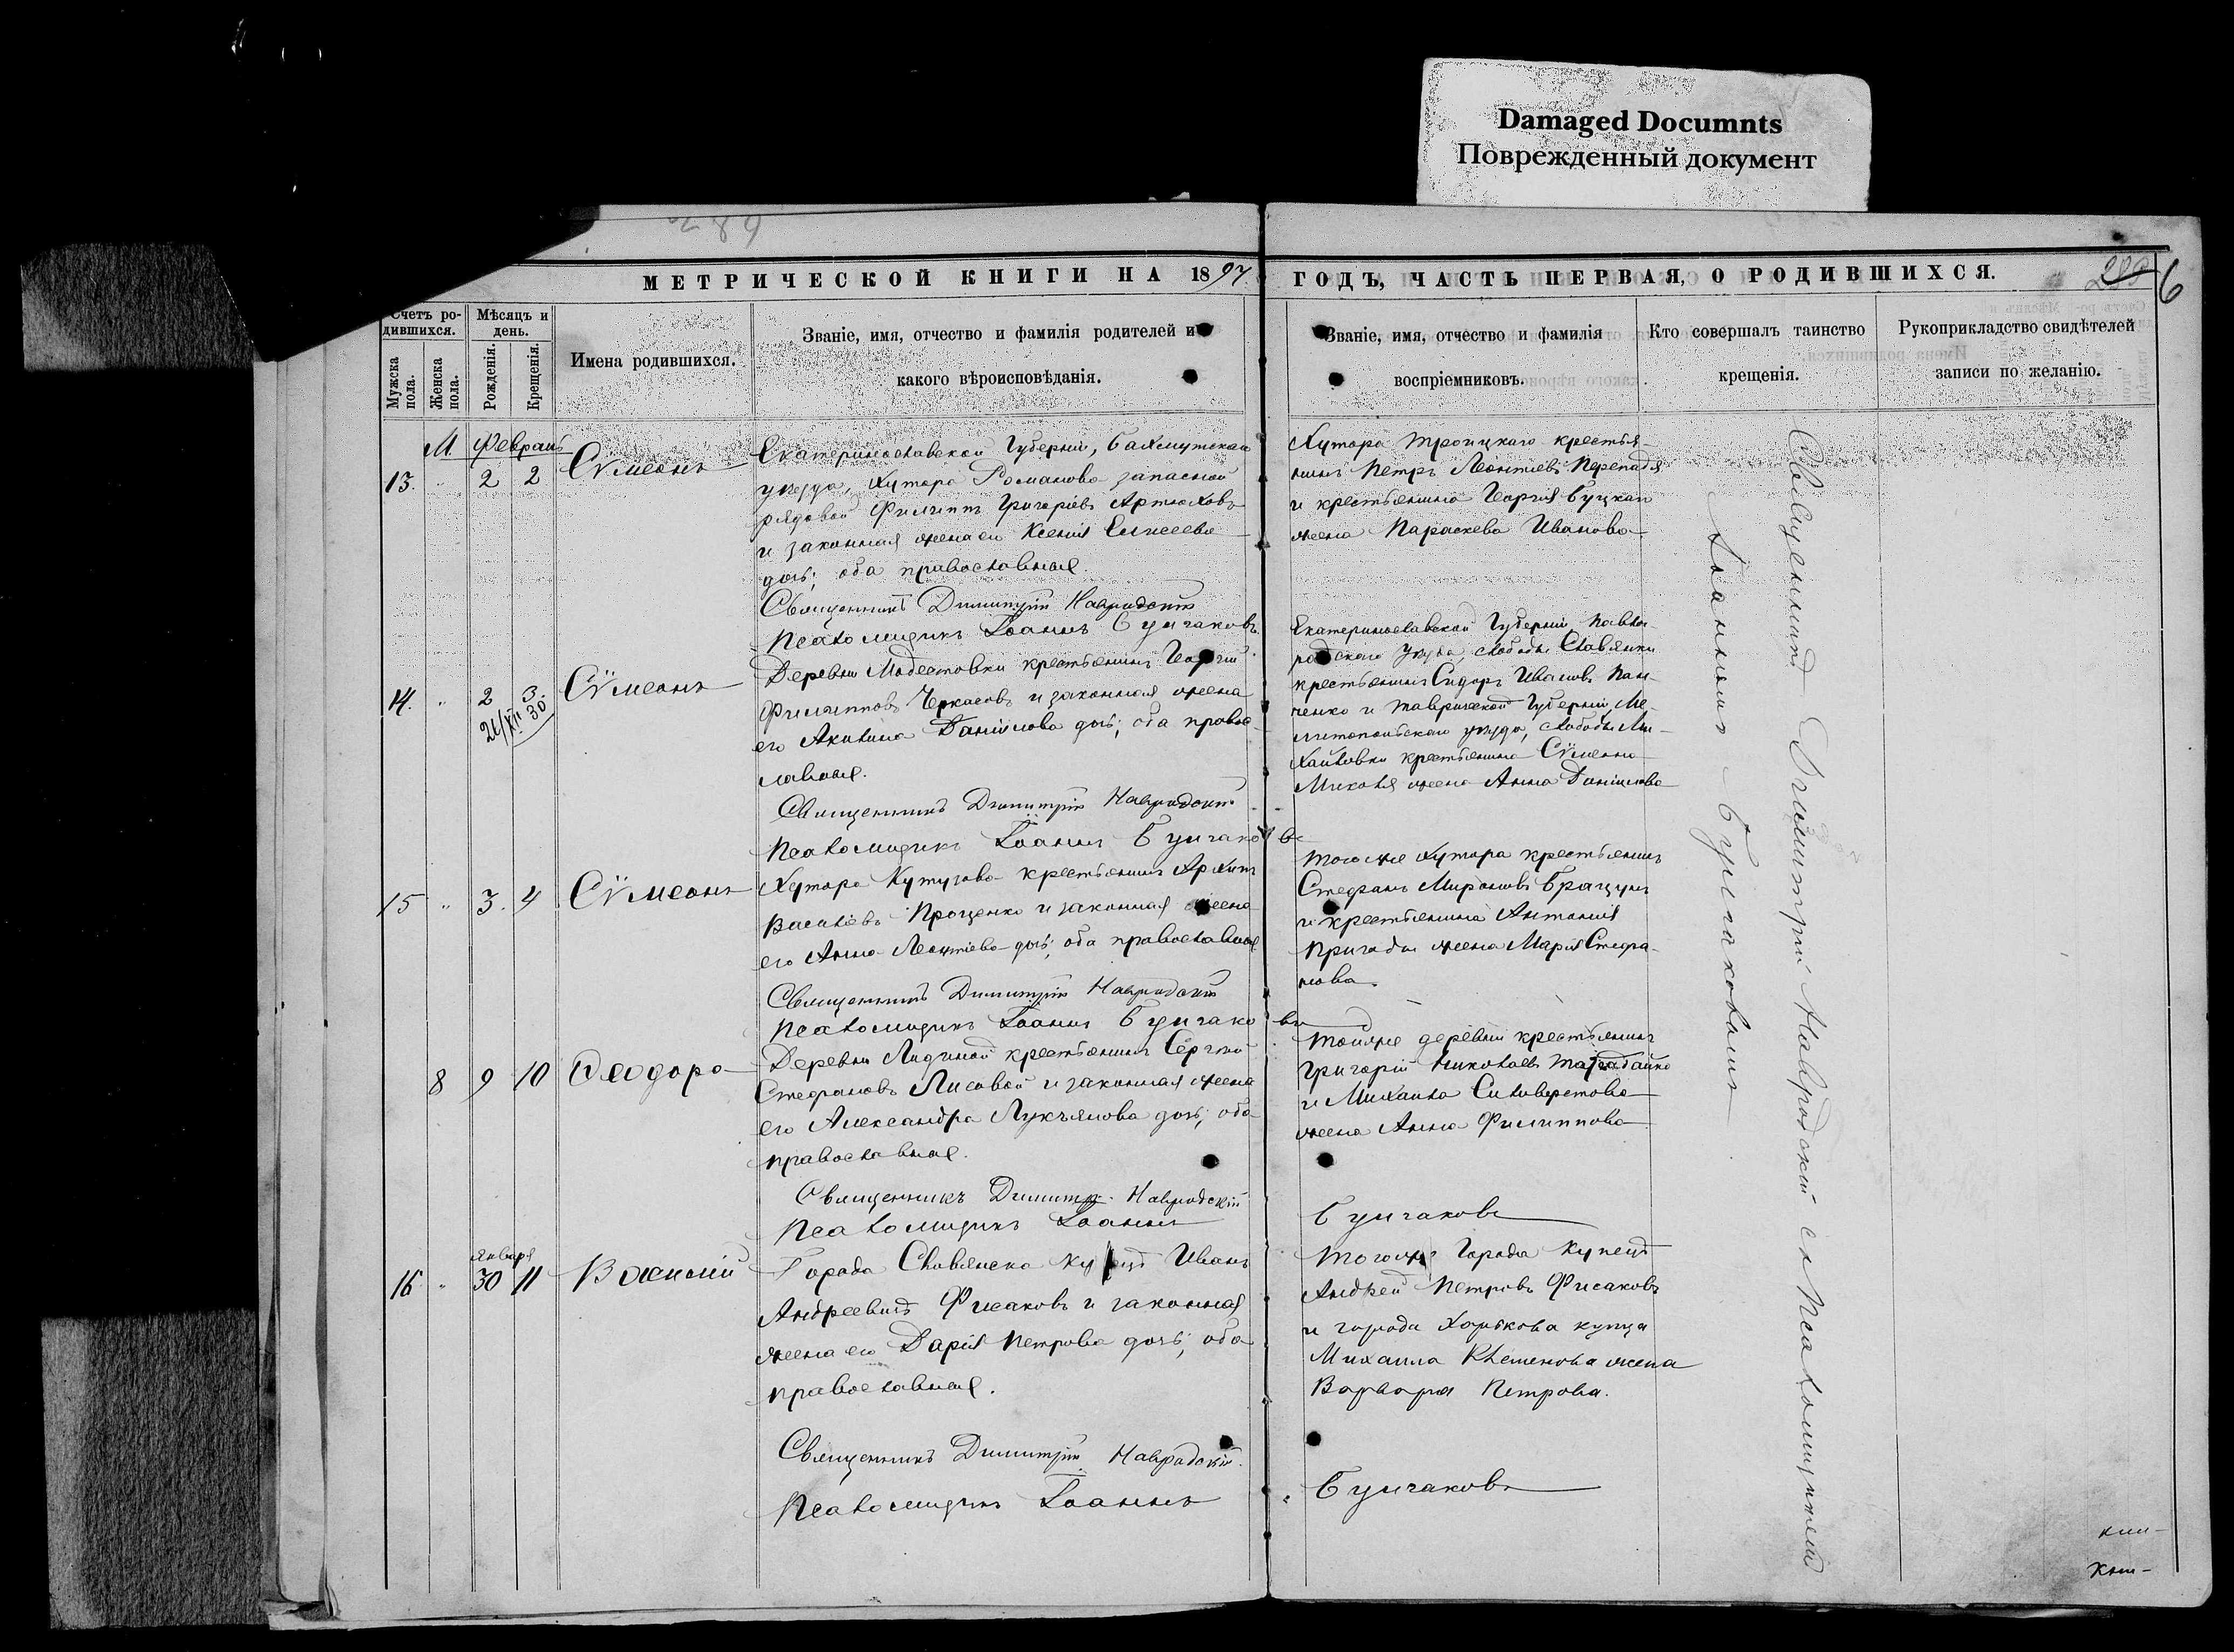 Damaged Documnts
Поврежденный документ
289
МЕТРИЧЕСКОЙ КНИГИ НА 1897 ГОДЪ, ЧАСТЬ ПЕРВАЯ, О РОДИВШИХСЯ.
6
Счетъ ро-
дившихся.
Мужска пола.
Женска пола.
Мѣсяцъ и
день.
Рожденія.
Крещенія.
Имена родившихся.
Званіе, имя, отчество и фамилія родителей и
какого вѣроисповѣданія.
Званіе, имя, отчество и фамилія
воспріемниковъ.
Кто совершалъ таинство
крещенія.
Рукоприкладство свидѣтелей
записи по желанію.
М Февраль
13. " 2 2 Сѵмеонъ
Екатеринославской Губерніи, Бахмутскаго
уѣзда, хутора Романова запасной
рядовой Филиппъ Григоріевъ Артюховъ
и законная жена его Ксенія Елисеева
дочь; оба православные.
Священникъ Димитрій Навродскій
Псаломщикъ Іоаннъ Булгаковъ
Хутора Троицкаго крестья-
нинъ Петръ Леонтіевъ Перепадя
и крестьянина Георгія Буцкаго
жена Параскева Иванова
14. " 2 3. Сѵмеонъ
21/XII 30
Деревни Модестовки крестьянинъ Георгій
Филипповъ Черкасовъ и законная жена
его Акилина Даніилова дочь; оба правос-
лавные.
Священникъ Димитрій Навродскій
Псаломщикъ Іоаннъ Булгаковъ
Екатеринославской Губерніи Павло-
градскаго уѣзда, слободы Славянки
крестьянинъ Сидоръ Ивановъ Пан-
ченко и Таврической Губерніи, Ме-
литопольскаго уѣзда, слободы Ми-
хайловки крестьянина Сѵмеона
жена Анна Даніилова
15 " 3. 4 Сѵмеонъ
Хутора Кутузова крестьянинъ Архипъ
Василіевъ Проценко и законная жена
его Анна Леонтіева дочь; оба православные
Священникъ Димитрій Навродскій
Псаломщикъ Іоаннъ Булгаковъ
Того же хутора крестьянинъ
Стефанъ Мироновъ Брацунъ
и крестьянина Антонія
Пригоды жена Марія Стефа-
нова.
8 9 10 Ѳеодора
Деревни Лидиной крестьянинъ Сергій
Стефановъ Лисовой и законная жена
его Александра Лукъянова дочь; оба
православные.
Священникъ Димитр. Навродскій
Псаломщикъ Іоаннъ Булгаковъ
Той же деревни крестьянинъ
Григорій Николаевъ
и Михаила Силиверстова
жена Анна Филиппова
Января
16 " 30 11 Василій
Города Славянска купецъ Иванъ
Андреевичъ Фисаковъ и законная
жена его Дарія Петрова дочь; оба
православные.
Священникъ Димитрій Навродскій.
Псаломщикъ Іоаннъ Булгаковъ
Того же города купецъ
Андрей Петровъ Фисаковъ
и города Харькова купца
Михаила Клеменова жена
Варвара Петрова.
Священникъ Димитрій Навродскій съ Псаломщикомъ
Іоанномъ Булгаковымъ